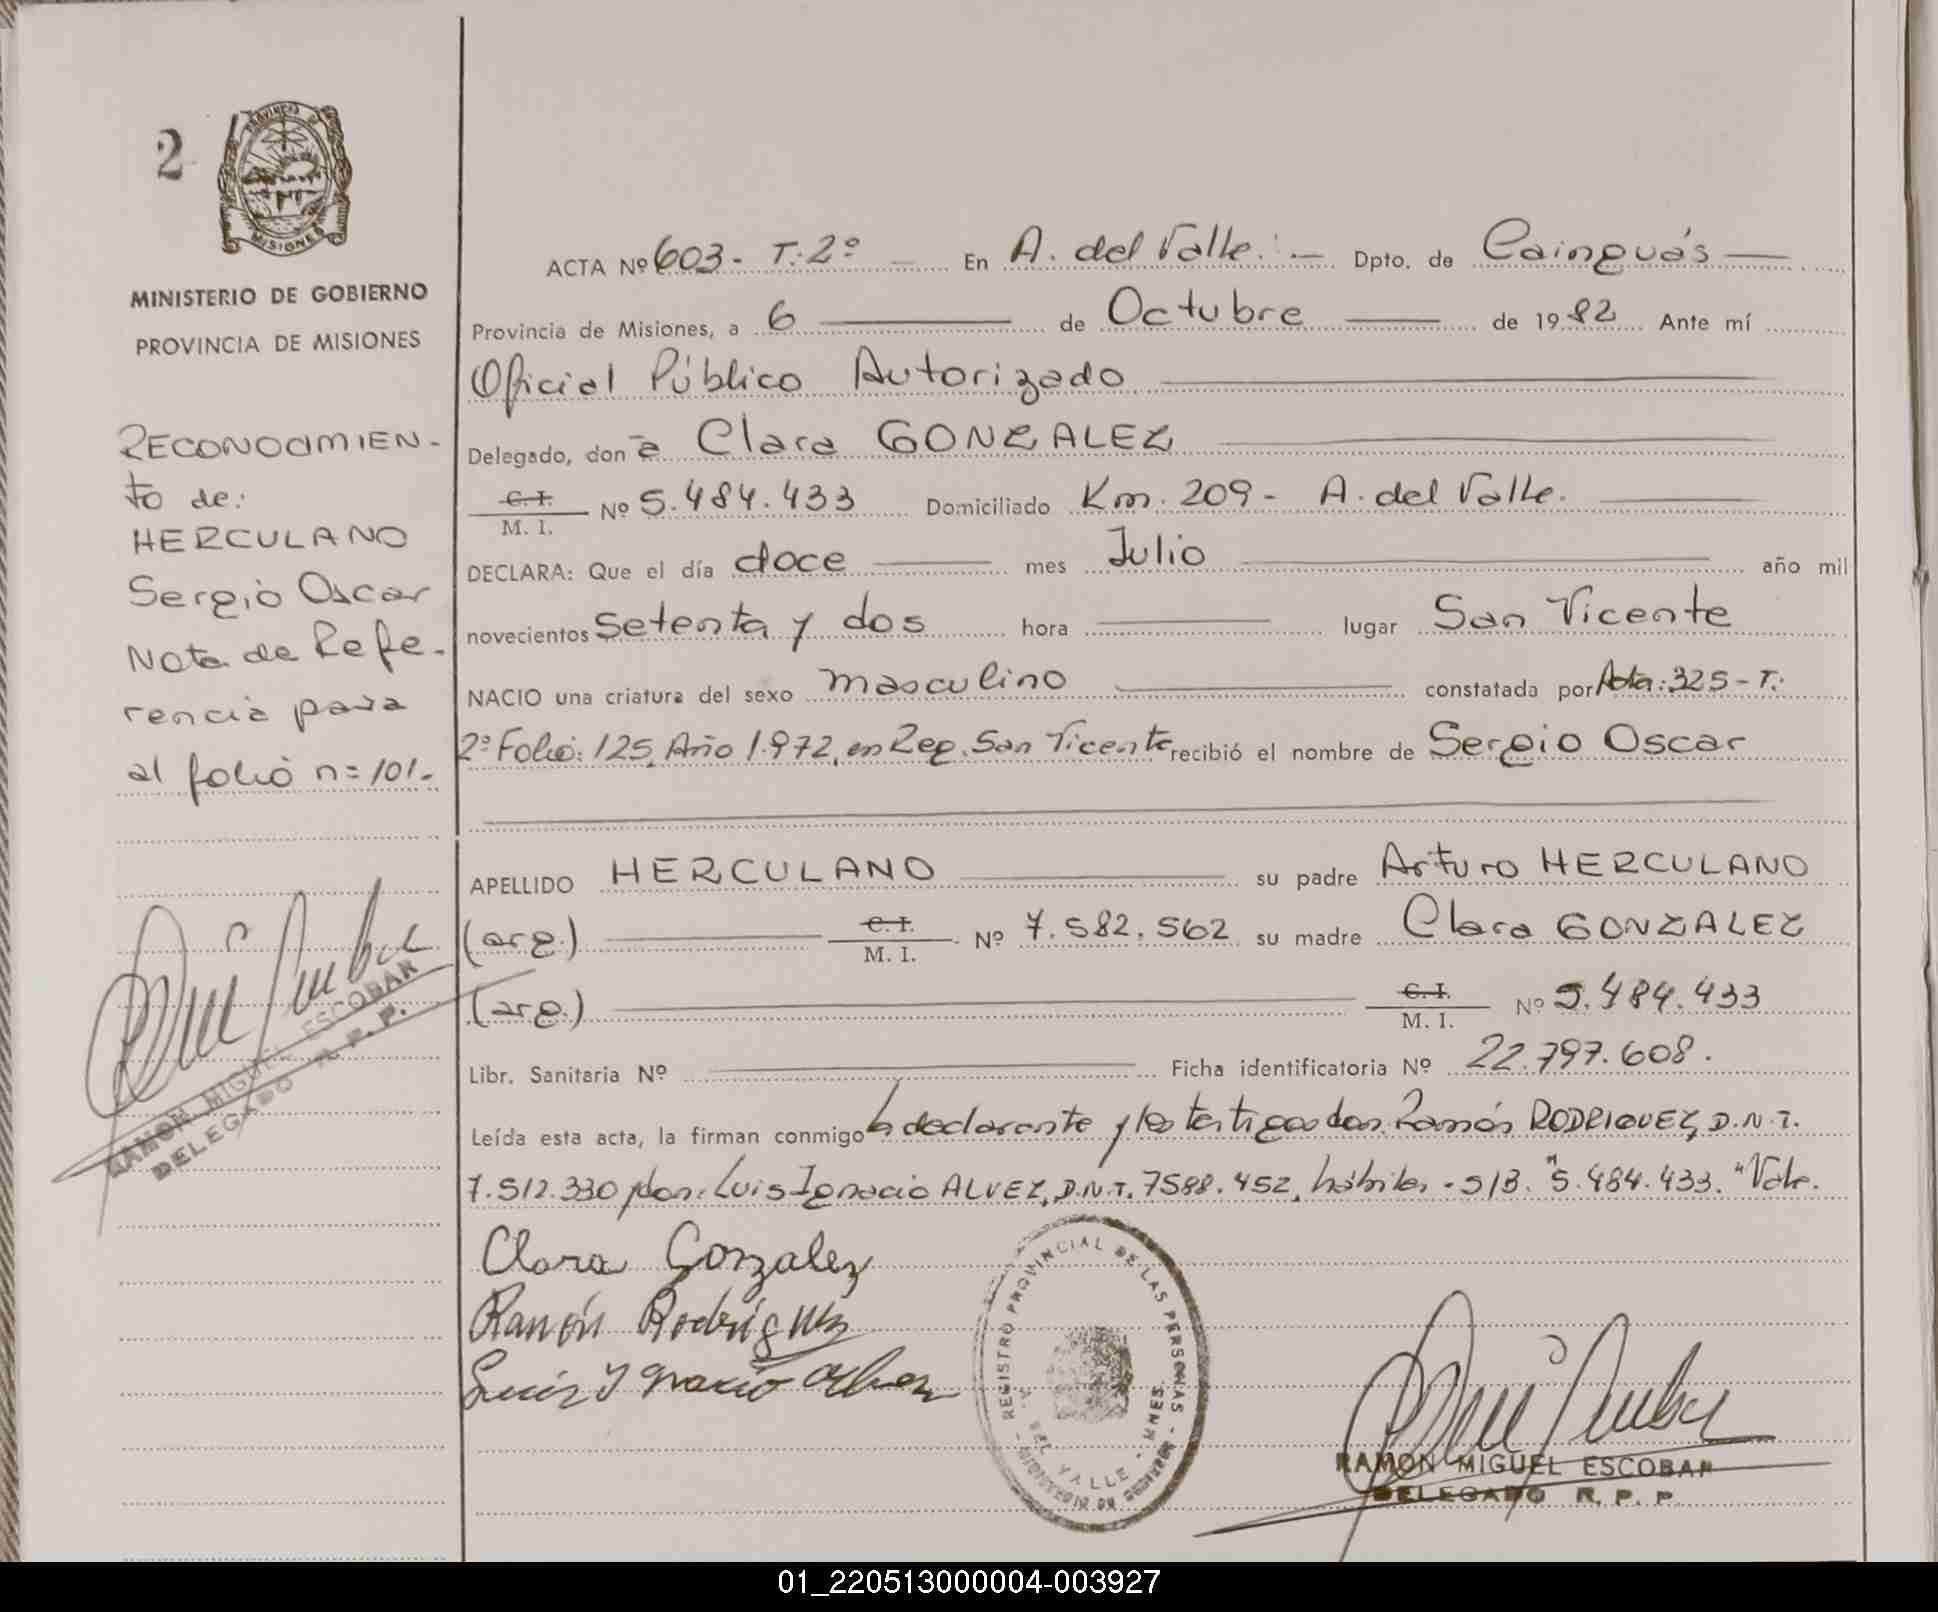 2
PROVINCIA D
MISIONES
MINISTERIO DE GOBIERNO
PROVINCIA DE MISIONES
RECONOCIMIEN-
to de:
HERCULANO
Sergio Oscar
Nota de Refe-
rencia para
al folio n= 101-
RAMON MIGUEL ESCOBAR
DELEGADO R. P. P.
ACTA Nº 603 - T: 2º - En A. del Valle: - Dpto. de Cainguás
Provincia de Misiones, a 6 de Octubre de 1982 Ante mí
Oficial Público Autorizado
Delegado, don a Clara GONZALEZ
C. I.
M. I. Nº 5.484.433 Domiciliado Km. 209 - A. del Valle.
DECLARA: Que el día doce mes Julio año mil
novecientos setenta y dos hora lugar San Vicente
NACIO una criatura del sexo masculino constatada por Acta: 325 - T:
2º Folio: 125, Año 1.972, en Reg. San Vicente recibió el nombre de Sergio Oscar
APELLIDO HERCULANO su padre Arturo HERCULANO
(arg.) C. I.
M. I. Nº 7.582.562 su madre Clara GONZALEZ
(arg.) C. I.
M. I. Nº 5.484.433
Libr. Sanitaria Nº Ficha identificatoria Nº 22.797.608.
Leída esta acta, la firman conmigo la declarante y los testigos don Ramón RODRIGUEZ, D.N.I.
7.512.330 y don: Luis Ignacio ALVEZ, D.N.I. 7588.452, hábiles - S/B. "5.484.433. "Vale.
Clara Gonzalez
Ramón Rodriguez
Luis Ygnacio Alvez
REGISTRO PROVINCIAL DE LAS PERSONAS
DEL VALLE - MNES
RAMON MIGUEL ESCOBAR
DELEGADO R. P. P.
01_220513000004-003927